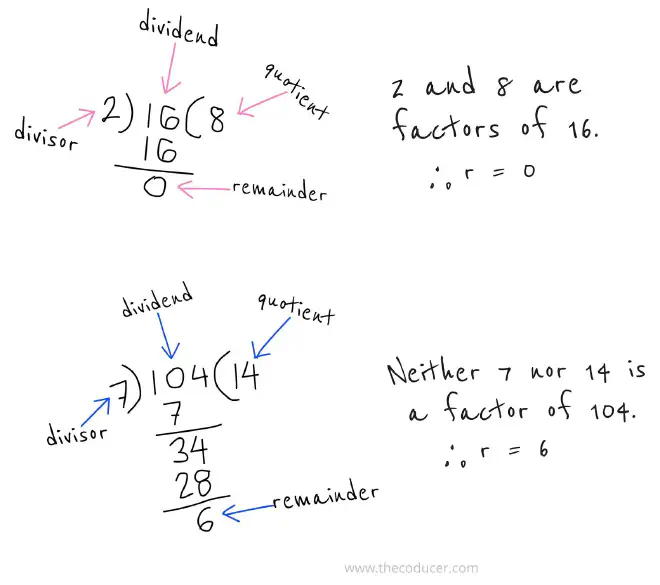 dividend
quotient
2) 16 ( 8
divisor
16
0
remainder
2 and 8 are
factors of 16.
∴ r = 0
dividend
quotient
7) 104 ( 14
divisor
7
34
28
6
remainder
Neither 7 nor 14 is
a factor of 104.
∴ r = 6
www.thecoducer.com